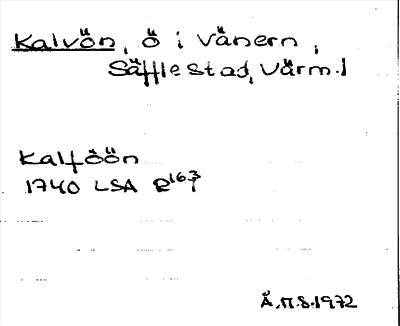 Kalvön, ö i Vänern,
Säffle stad, Värm.l
Kalföön
1740 LSA R 163/1
Å.M.S. 1972